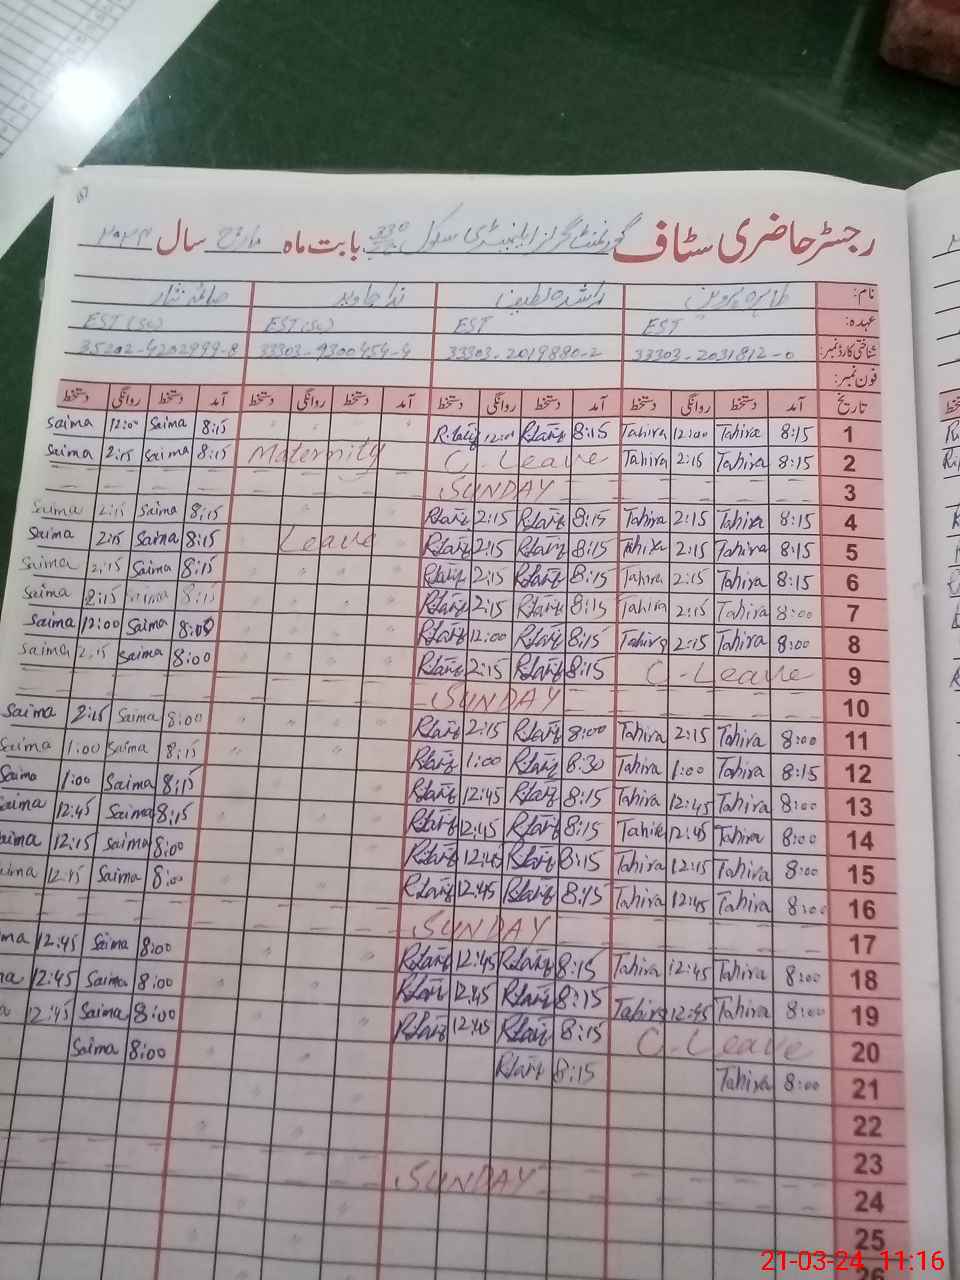 رجسٹر حاضری سٹاف گورنمنٹ گرلز ایلیمنٹری سکول بابت ماہ مارچ سال ۲۰۲۴
نام: طاہرہ پروین راشدہ لطیف ندا جاوید صائمہ نثار
عہدہ: EST EST EST (Sc) EST (Sc)
شناختی کارڈ نمبر: 33303-2031812-0 33303-2019880-2 33303-9300454-4 35202-4202999-8
فون نمبر:
تاریخ آمد دستخط روانگی دستخط آمد دستخط روانگی دستخط آمد دستخط روانگی دستخط آمد دستخط روانگی دستخط
Saima 12:00 Saima 8:15 8:15 Tahira 12:00 Tahira 8:15 1
Saima 2:15 Saima 8:15 Maternity C. Leave Tahira 2:15 Tahira 8:15 2
SUNDAY 3
Saima 2:15 Saima 8:15 2:15 8:15 Tahira 2:15 Tahira 8:15 4
Saima 2:15 Saima 8:15 Leave 2:15 8:15 Tahira 2:15 Tahira 8:15 5
Saima 2:15 Saima 8:15 2:15 8:15 Tahira 2:15 Tahira 8:15 6
Saima 2:15 Saima 8:15 2:15 8:15 Tahira 2:15 Tahira 8:00 7
Saima 12:00 Saima 8:00 12:00 8:15 Tahira 2:15 Tahira 8:00 8
Saima 2:15 Saima 8:00 2:15 8:15 C-Leave 9
SUNDAY 10
Saima 2:15 Saima 8:00 2:15 8:00 Tahira 2:15 Tahira 8:00 11
Saima 1:00 Saima 8:15 1:00 8:30 Tahira 1:00 Tahira 8:15 12
Saima 1:00 Saima 8:15 12:45 8:15 Tahira 12:45 Tahira 8:00 13
Saima 12:45 Saima 8:15 12:45 8:15 Tahira 12:45 Tahira 8:00 14
Saima 12:15 Saima 8:00 12:45 8:15 Tahira 12:45 Tahira 8:00 15
12:45 Saima 8:00 12:45 8:15 Tahira 12:45 Tahira 8:00 16
SUNDAY 17
12:45 Saima 8:00 12:45 8:15 Tahira 12:45 Tahira 8:00 18
12:45 Saima 8:00 12:45 8:15 Tahira 12:45 Tahira 8:00 19
12:45 Saima 8:00 12:45 8:15 C-Leave 20
Saima 8:00 8:15 Tahira 8:00 21
22
23
SUNDAY 24
25
26
21-03-24 11:16